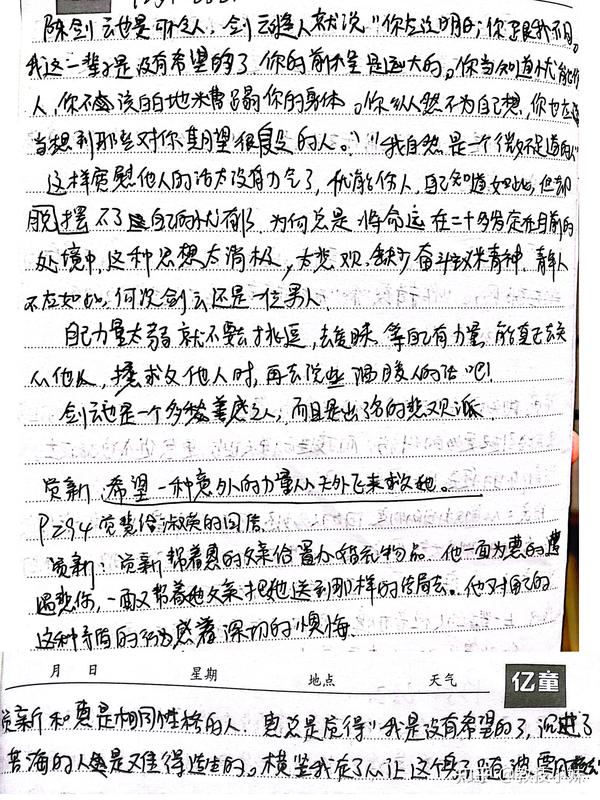 陈剑云也是可怜人,剑云惹人就说"你应该明白;你跟我不同。
我这一辈子是没有希望的了,你的前途是远大的。你当知道忧能伤
人,你不应该白白地糟蹋你的身体。你纵然不为自己想,你也应该
当想到那些对你期望很殷的人。""我自然是一个微不足道的人"
这样宽慰他人的话太没有力气了,忧能伤人,自己知道如此,但却
脱摆不了自己的忧郁。为何总是将命运在二十多岁定在目前的
处境中,这种思想太消极,太悲观,缺少奋斗主义精神,青年人
不应如此,何况剑云还是一位男人。
自己力量太弱就不要去挑逗,去暧昧,等自己有力量,能真正去
从他人,拯救他人时,再去说些调皮人的话吧!
剑云也是一个多愁善感之人,而且是出名的悲观派。
觉新:希望一种意外的力量从天外飞来救她。
P294 觉慧给淑英的回信
觉新:觉新帮着蕙的父亲给置办婚礼物品,他一面为蕙的遭
遇悲伤,一面又帮着她父亲把她送到那样的结局去。他对自己的
这种矛盾的行为感着深切的懊悔。
月 日 星期 地点 天气 亿童
觉新和蕙是相同性格的人,蕙总是觉得"我是没有希望的了,沉进了
苦海的人是难得超生的。横竖我定了心让这个身子随波